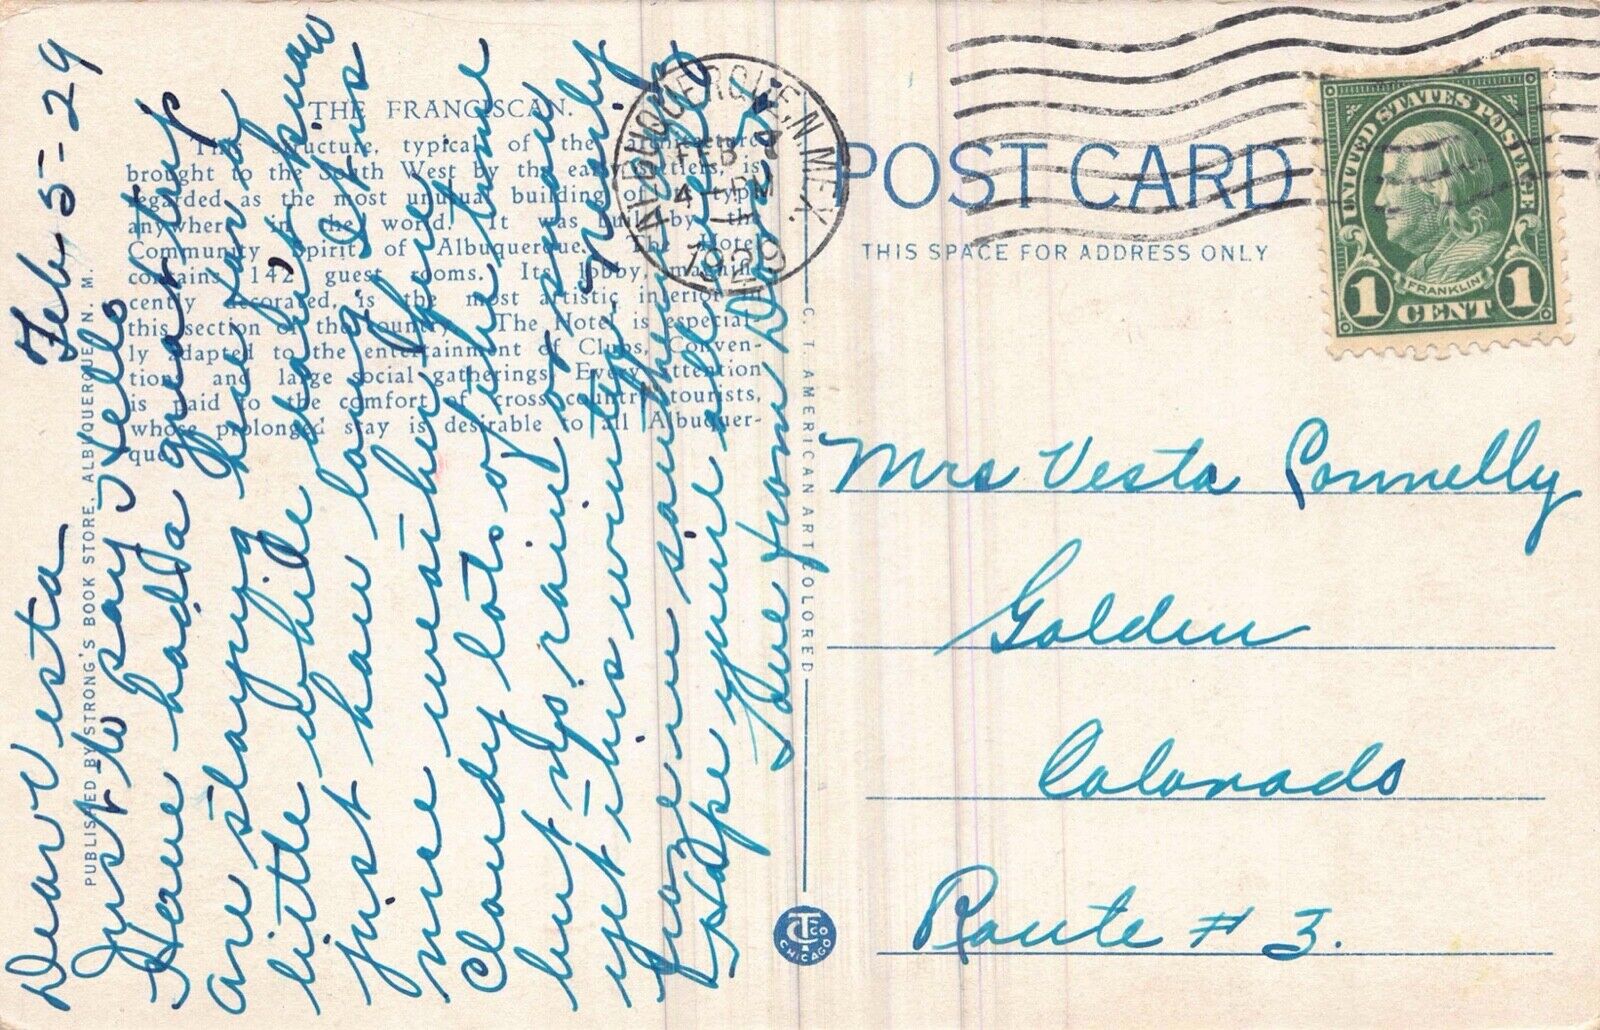 Feb-5-29
Dear Vesta
Just to say Hello
Have had a great trip
are staying here for a
little while dahut know
just how long. It is
nice weather here
Cloudy lots of the time
but no rain or snow
yet this winter. Nearly
froze in southern
Hope you're all well
Love from
THE FRANCISCAN.
This structure, typical of the architecture
brought to the South West by the early settlers, is
regarded as the most unusual building of its type
anywhere in the world. It was built by the
Community Spirit of Albuquerque. The Hotel
contains 142 guest rooms. Its lobby, magnifi-
cently decorated, is the most artistic interior in
this section of the country. The Hotel is especial-
ly adapted to the entertainment of Clubs, Conven-
tions and large social gatherings. Every attention
is paid to the comfort of cross country tourists,
whose prolonged stay is desirable to all Albuquer-
que.
PUBLISHED BY STRONG'S BOOK STORE, ALBUQUERQUE, N. M.
C. T. AMERICAN ART COLORED
CT CO
CHICAGO
ALBUQUERQUE, N. MEX.
FEB 7
4-PM
1929
POST CARD
THIS SPACE FOR ADDRESS ONLY
UNITED STATES POSTAGE
FRANKLIN
1 CENT 1
Mrs Vesta Connelly
Golden
Colorado
Route # 3.